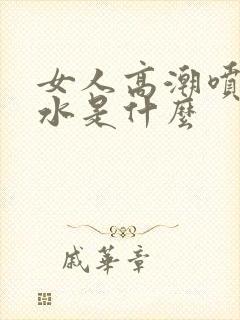 女人高潮噴
水是什麼
戚華章